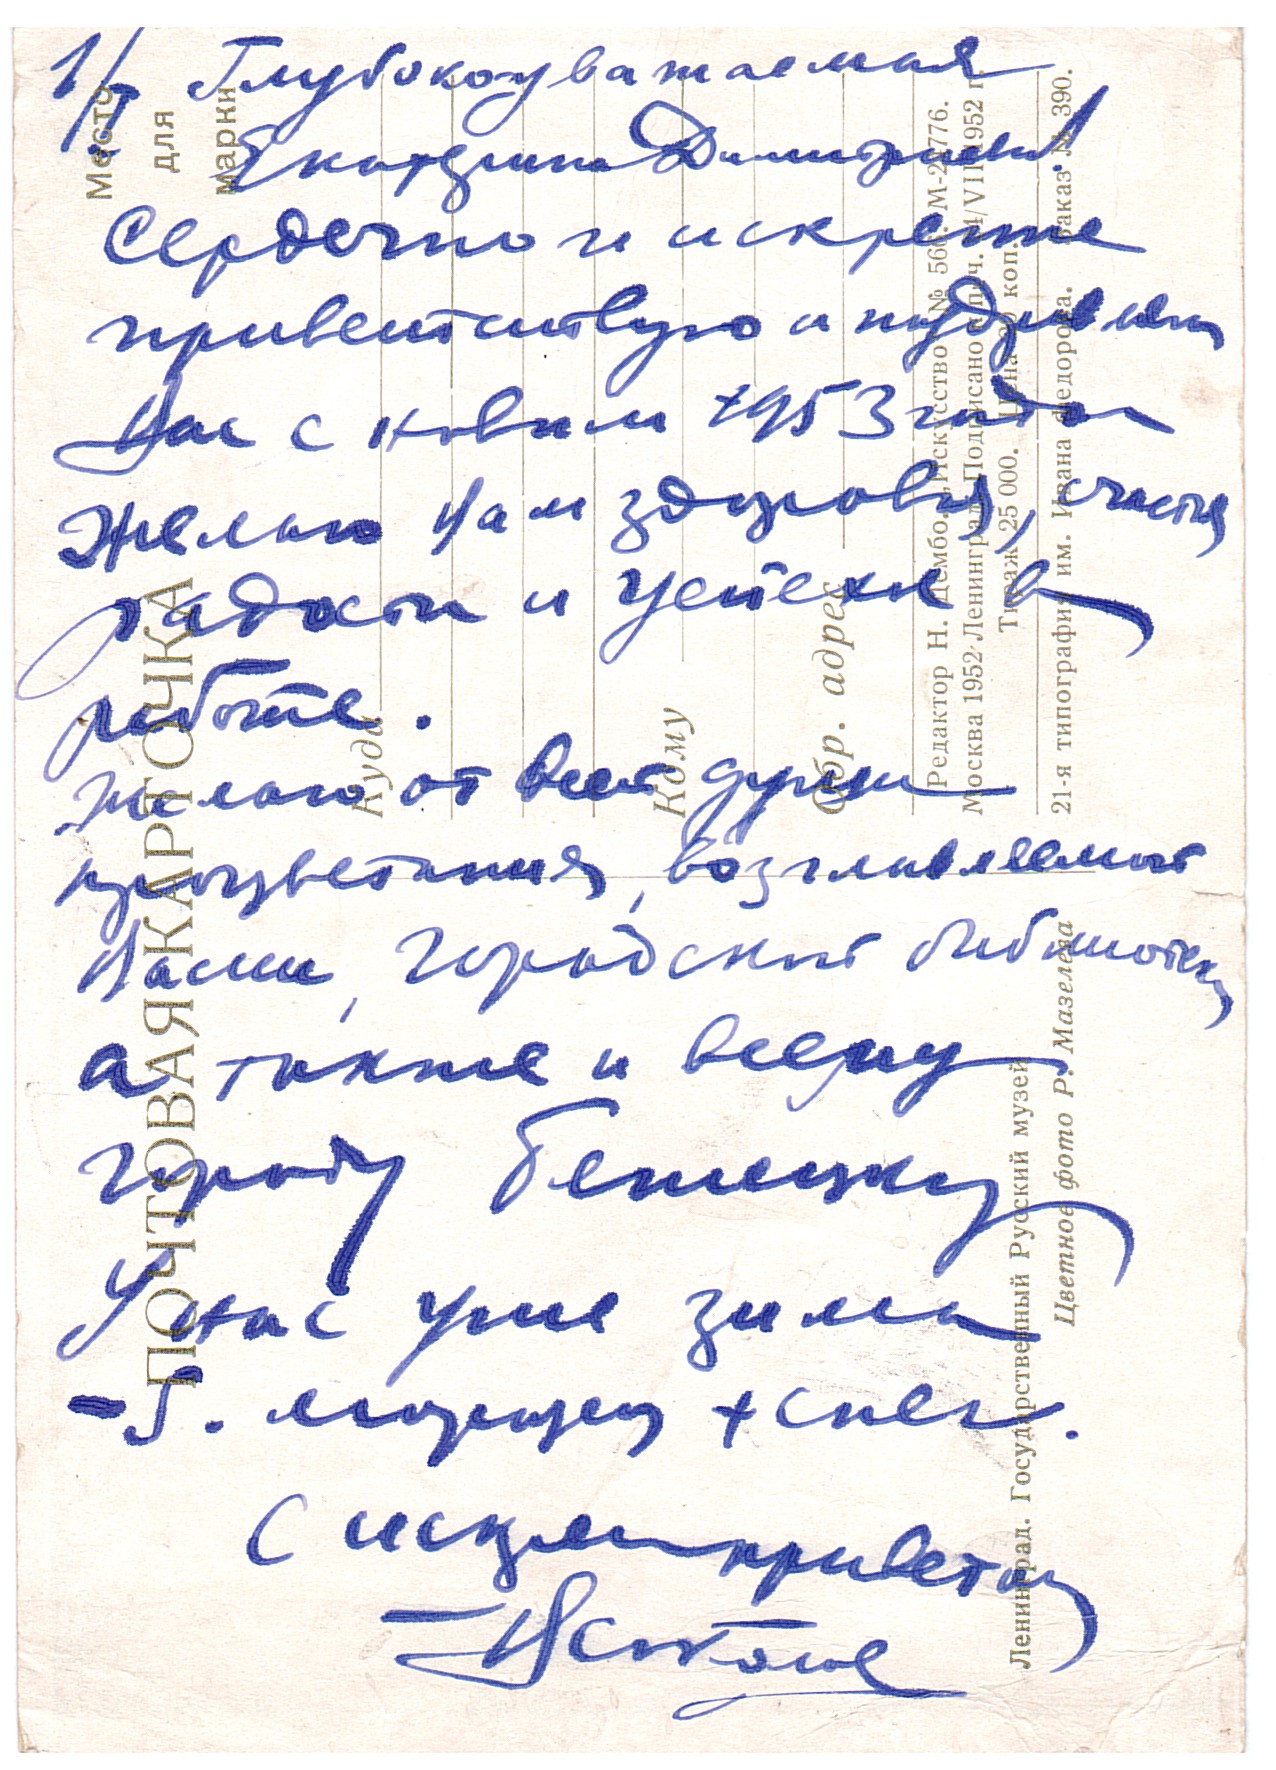 1/I Глубокоуважаемая
Екатерина Димитриевна!
Сердечно и искренне
приветствую и поздравляю
Вас с новым 1953 годом
Желаю Вам здоровья, счастья
радости и успехов в
работе.
Желаю от всей души
процветания, возглавляемой
Вами, городской библиотеки
а также и всему
городу Бежецку
У нас уже зима
-5. мороз + снег.
С искрен приветом
Место
для
марки
ПОЧТОВАЯ КАРТОЧКА
Куда
Кому
Обр. адрес
Редактор Н. Дембо. „Искусство" №
Москва 1952 Ленинград. Подписано
Тираж 25 000. Цена коп.
21-я типография им. Ивана Федорова. Заказ № 390.
Ленинград. Государственный Русский музей
Цветное фото Р. Мазелева